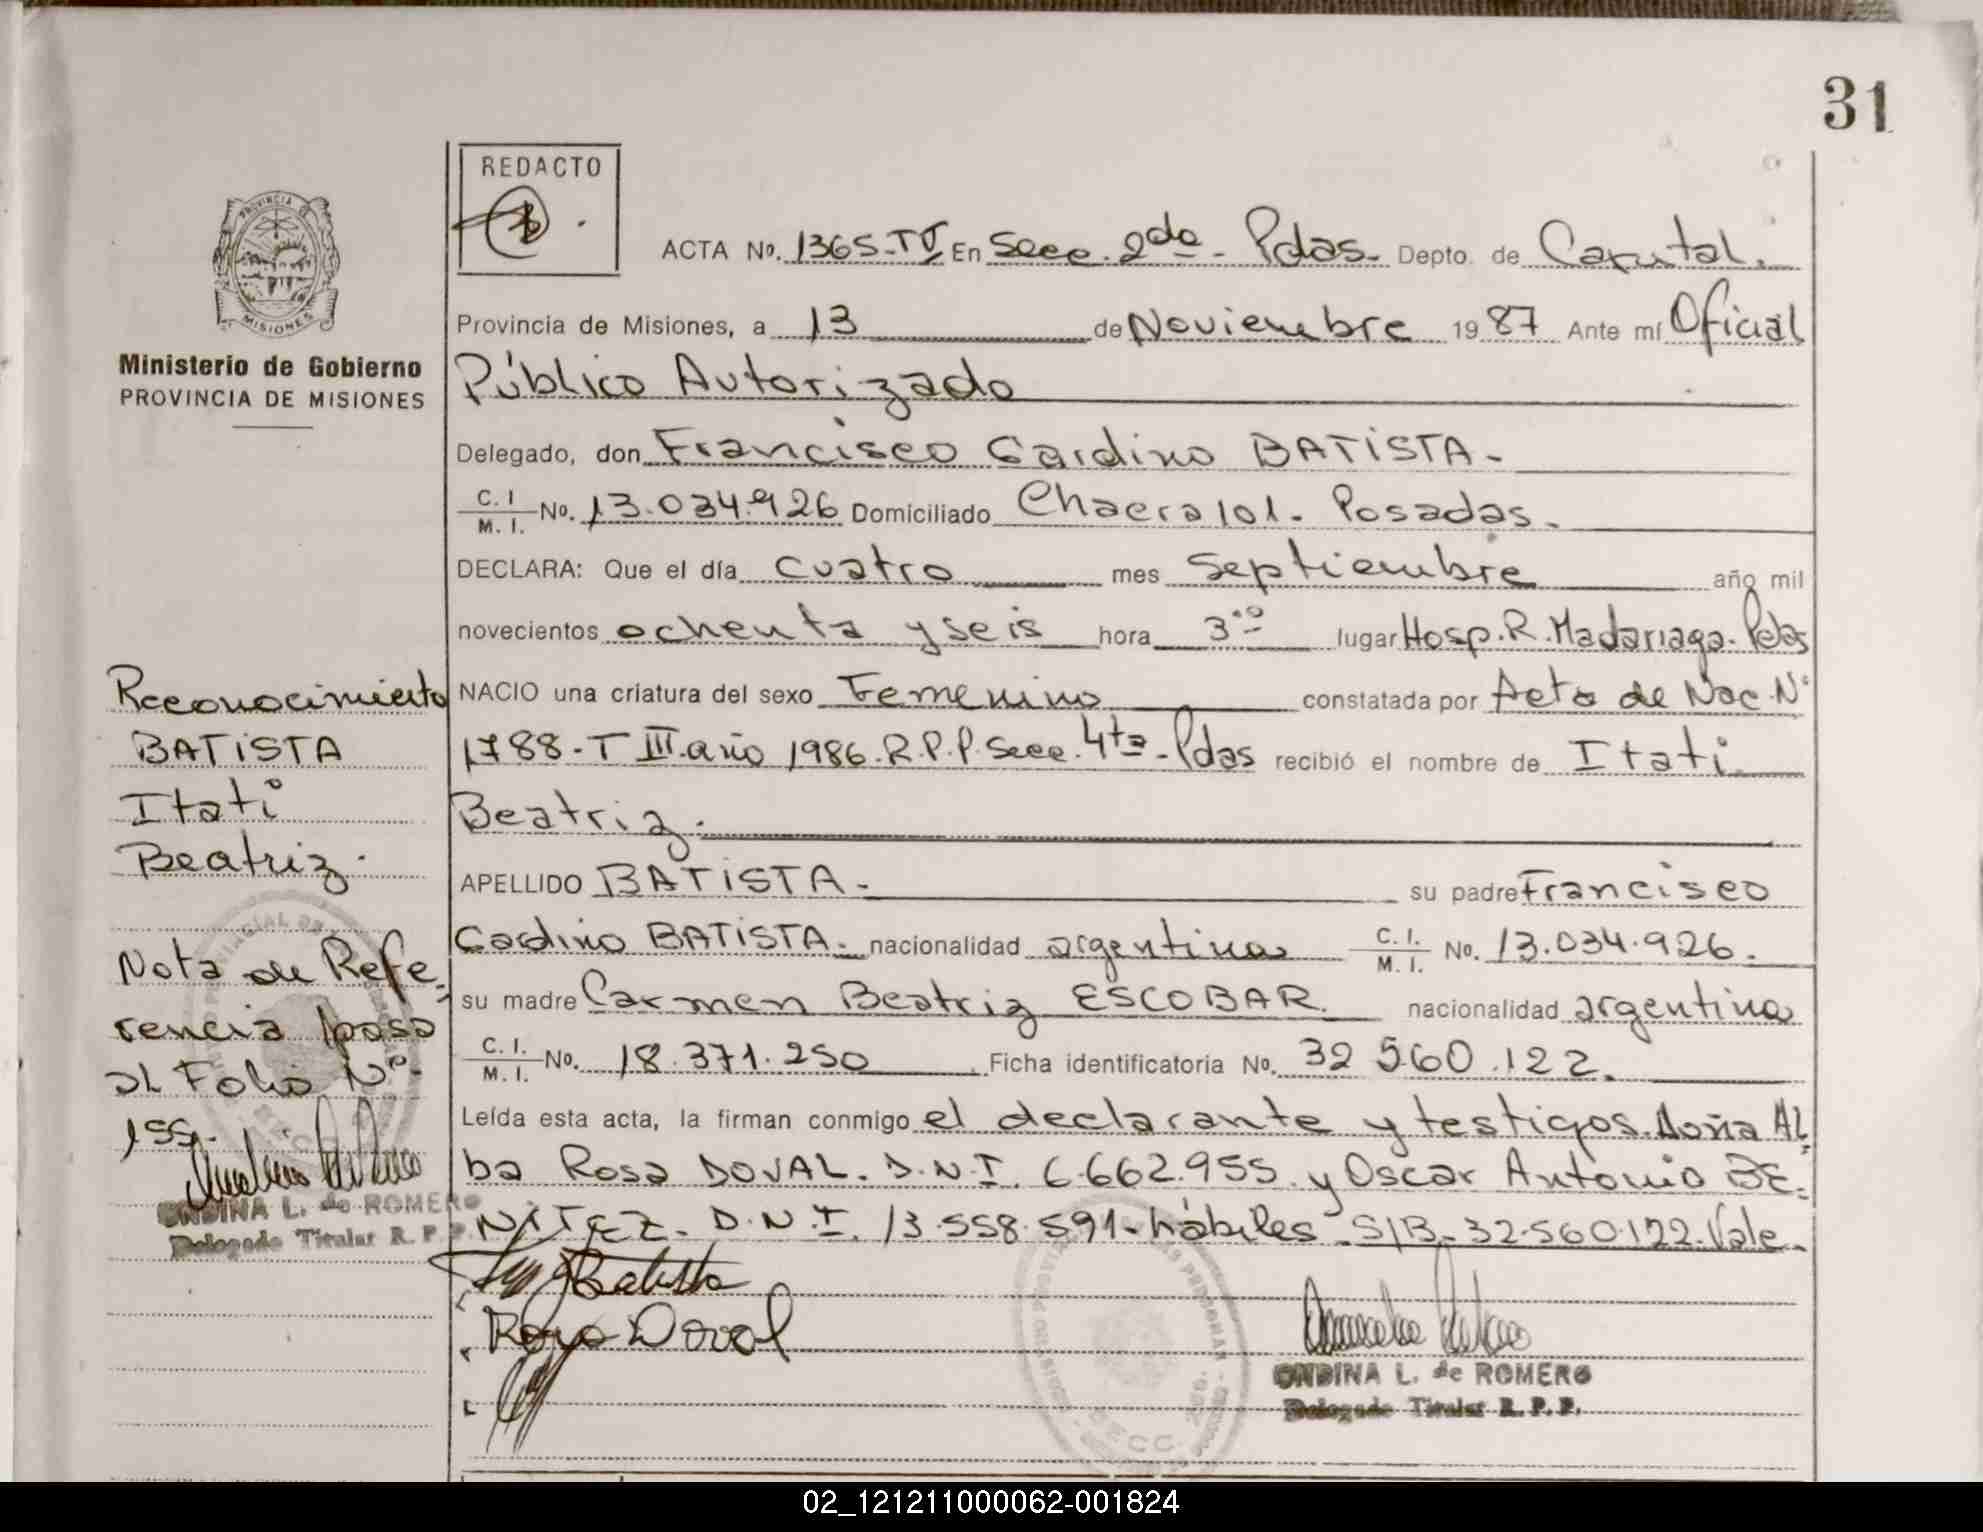 31
REDACTO
ACTA No. 1365-TV En Secc. 2da - Pdas. Depto. de Capital.
PROVINCIA DE
MISIONES
Provincia de Misiones, a 13 de Noviembre 1987 Ante mí Oficial
Ministerio de Gobierno
PROVINCIA DE MISIONES
Público Autorizado
Delegado, don Francisco Gardino BATISTA.
C. I. / M. I. No. 13.034.926 Domiciliado Chacra 101. Posadas.
DECLARA: Que el día cuatro mes Septiembre año mil
novecientos ochenta y seis hora 3.00 lugar Hosp. R. Madariaga. Pdas
NACIO una criatura del sexo Femenino constatada por Acta de Nac. N°
1788-T III año 1986. R.P.P. Secc. 4ta - Pdas recibió el nombre de Itati
Beatriz.
APELLIDO BATISTA. su padre Francisco
Gardino BATISTA. nacionalidad argentina C. I. / M. I. No. 13.034.926.
su madre Carmen Beatriz ESCOBAR. nacionalidad argentina
C. I. / M. I. No. 18.371.250 Ficha identificatoria No. 32 560.122.
Leída esta acta, la firman conmigo el declarante y testigos. Doña Al
ba Rosa DOVAL. D.N.I. 6.662.955 y Oscar Antonio BE-
NITEZ. D.N.I. 13.558.591- hábiles. S/B- 32.560.122. Vale.
Reconocimiento
BATISTA
Itati
Beatriz.
Nota de Refe-
rencia pasa
al Folio N°
155.
ONDINA L. de ROMERO
Delegado Titular R. P. P.
Batista
Rosa Doval
ONDINA L. de ROMERO
Delegado Titular R. P. P.
02_121211000062-001824